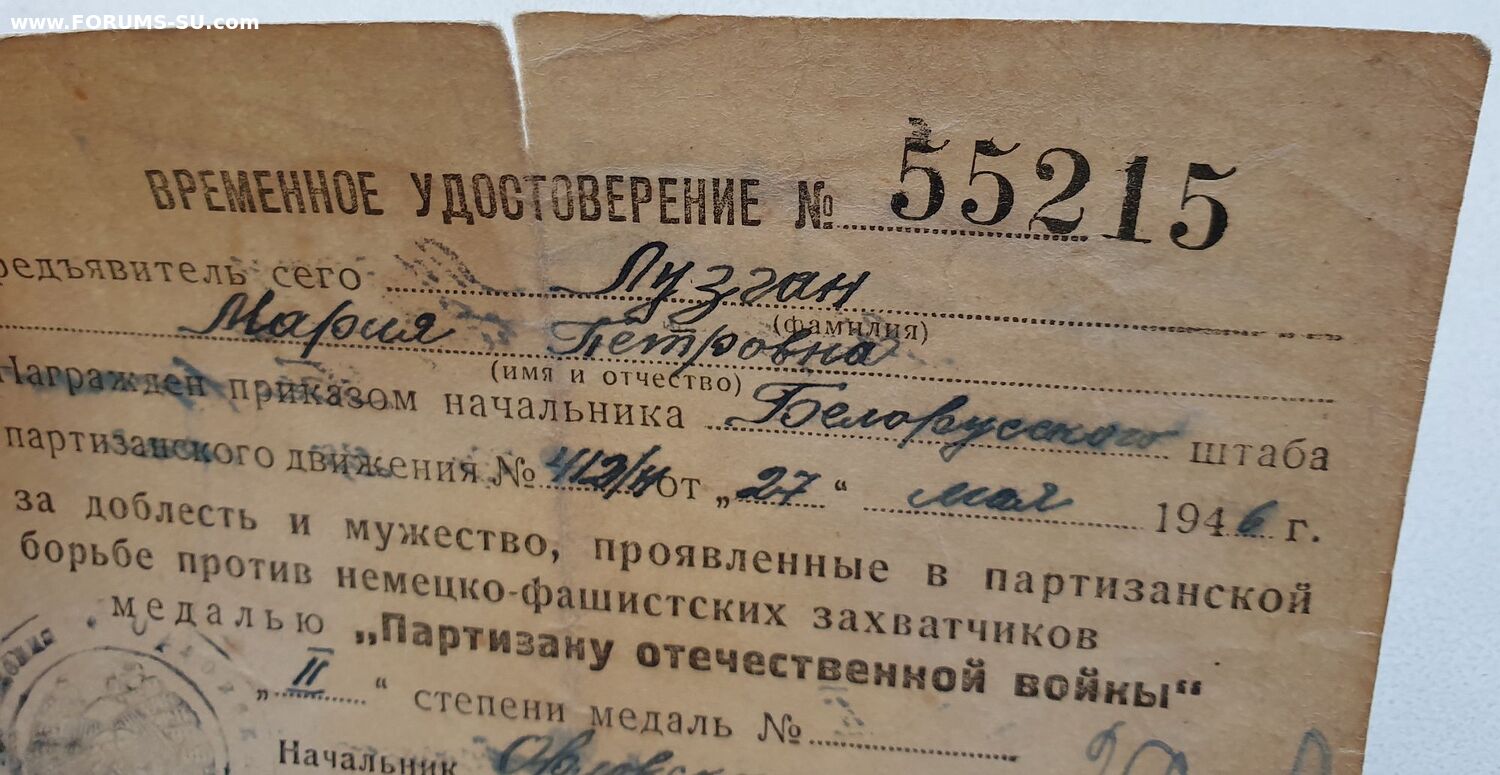 www.FORUMS-SU.com
ВРЕМЕННОЕ УДОСТОВЕРЕНИЕ № 55215
редъявитель сего Лузган
(фамилия)
Мария Петровна
(имя и отчество)
Награжден приказом начальника Белорусского штаба
партизанского движения № 412/н от „27“ мая 1946 г.
за доблесть и мужество, проявленные в партизанской
борьбе против немецко-фашистских захватчиков
медалью „Партизану отечественной войны“
„II“ степени медаль №
Начальник